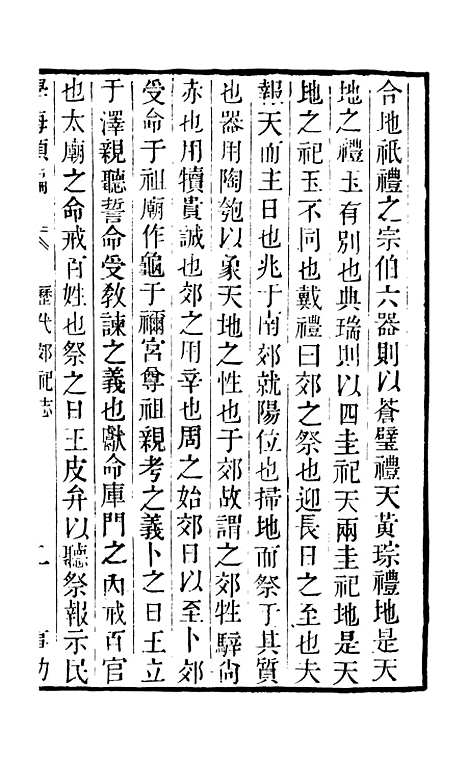 合地祇禮之宗伯六器則以蒼璧禮天黃琮禮地是天
地之禮玉有別也典瑞則以四圭祀天兩圭祀地是天
地之祀玉不同也戴禮曰郊之祭也迎長日之至也夫
報天而主日也兆于南郊就陽位也掃地而祭于其質
也器用陶匏以象天地之性也于郊故謂之郊牲騂尚
赤也用犢貴誠也郊之用辛也周之始郊日以至卜郊
受命于祖廟作龜于禰宮尊祖親考之義卜之日王立
于澤親聽誓命受敎諫之義也獻命庫門之內戒百官
也太廟之命戒百姓也祭之日王皮弁以聽祭報示民
學海類編
歷代郊祀志